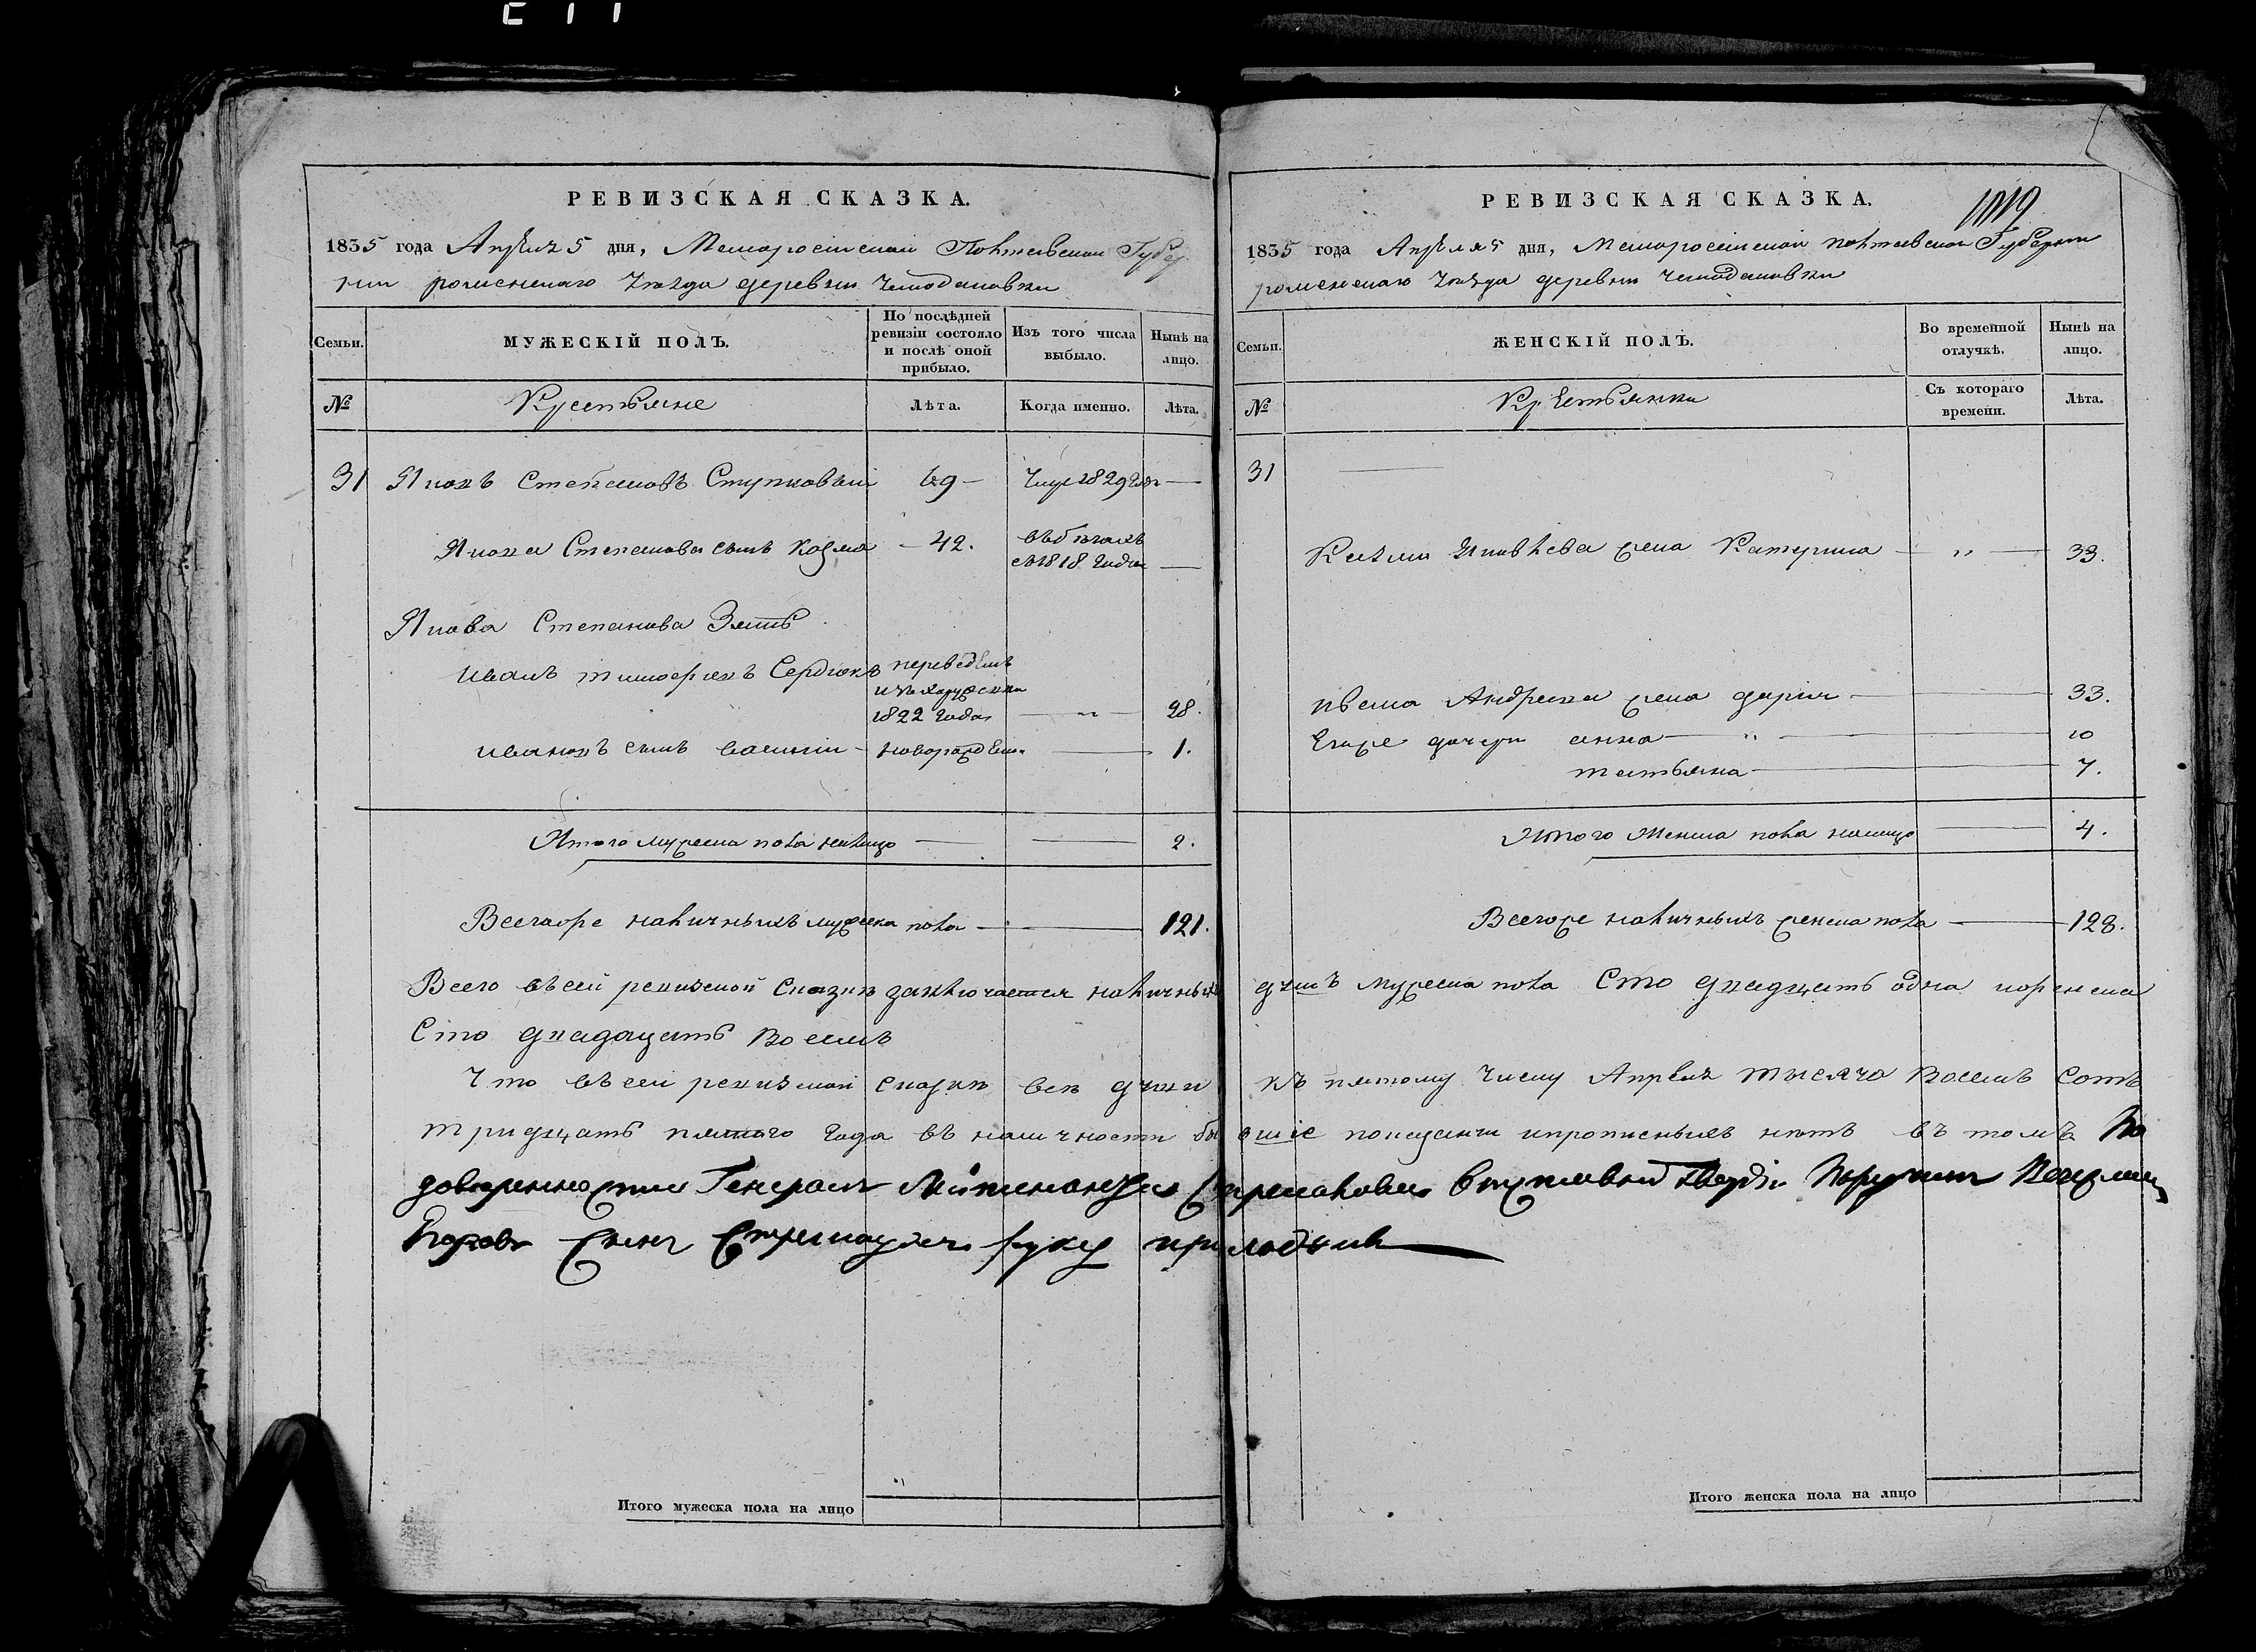 РЕВИЗСКАЯ СКАЗКА.
1835 года Апреля 5 дня, Малороссійской Полтавской Губер
ніи роменскаго уезда деревни Чемодановки
Семьи.
МУЖЕСКІЙ ПОЛЪ.
По послѣдней ревизіи состояло и послѣ оной прибыло.
Изъ того числа выбыло.
Нынѣ на лицо.
№
Крестьяне
Лѣта.
Когда именно.
Лѣта.
31 Яковъ Степановъ 49 — 1829 —
Якова Степанова сынъ Козма — 42. въ бегахъ
съ 1818 года —
Якова Степанова Зять
иванъ Сердюкъ переведенъ
изъ
1822 года — " — 28.
ивановъ сынъ василій — новорожденъ — 1.
Итого мужеска пола налицо — 2.
Всегоже наличныхъ мужеска пола — 121.
Итого мужеска пола на лицо
РЕВИЗСКАЯ СКАЗКА.
1835 года Апреля 5 дня, Малороссійской полтавской Губерніи
роменскаго уезда деревни Чемодановки
Семьи.
ЖЕНСКІЙ ПОЛЪ.
Во временной отлучкѣ.
Нынѣ на лицо.
№
Крестьянки
Съ котораго времени.
Лѣта.
31
Козмы Яковлева жена Катерина — " — 33.
ивана жена дарія — 33.
Егоже дочери анна — " — 10
татьяна — 7.
Итого Женска пола налицо — 4.
Всегоже наличныхъ женска пола — 128.
Итого женска пола на лицо
Всего въ сей ревизской Сказки заключается наличныхъ душъ мужеска пола Сто двадцать одна иоженска
Сто двадцать восемъ
Что въ сей ревизской сказки все души къ пятому числу Апреля тысяча восемь сотъ
тридцать пятого года въ наличности бывшіе показаны ипрописныхъ нетъ въ томъ По
доверенности Генерала гвардіи
сынъ руку приложилъ